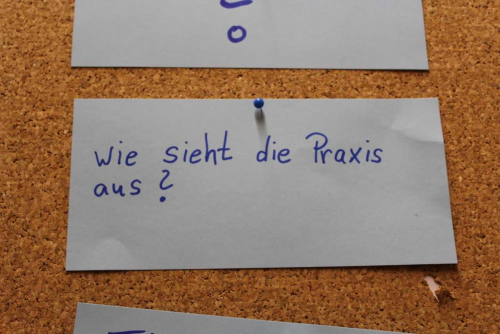 wie sieht die Praxis
aus?